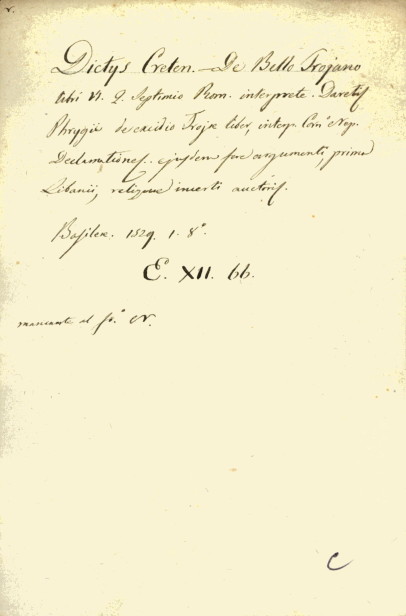 v.
Dictys Creten. — De Bello Trojano
libri VI. Q. Septimio Rom. interprete. Daretis
Phrygii de excidio Troja liber, interp. Corn. Nep.
Declamationes. ejusdem fere argumenti, prima
Libanii, reliquae incerti auctoris.
Basileæ. 1529. 1. 8°.
E. XII. 66.
mancante al fo.° N.
C